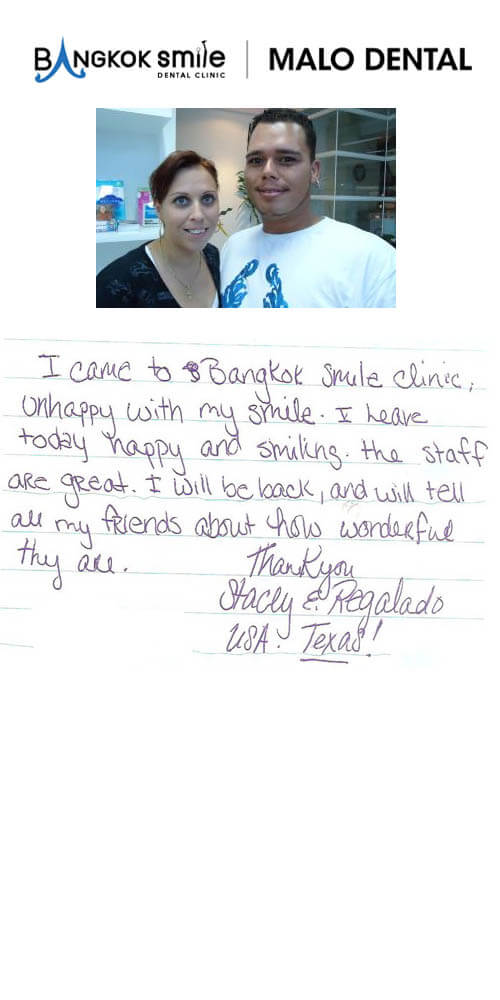 BANGKOK smile | MALO DENTAL
DENTAL CLINIC
I came to Bangkok Smile clinic,
Unhappy with my smile. I leave
today happy and smiling. the staff
are great. I will be back, and will tell
all my friends about how wonderful
thy are.
Thankyou
Stacey E. Regalado
USA. Texas!